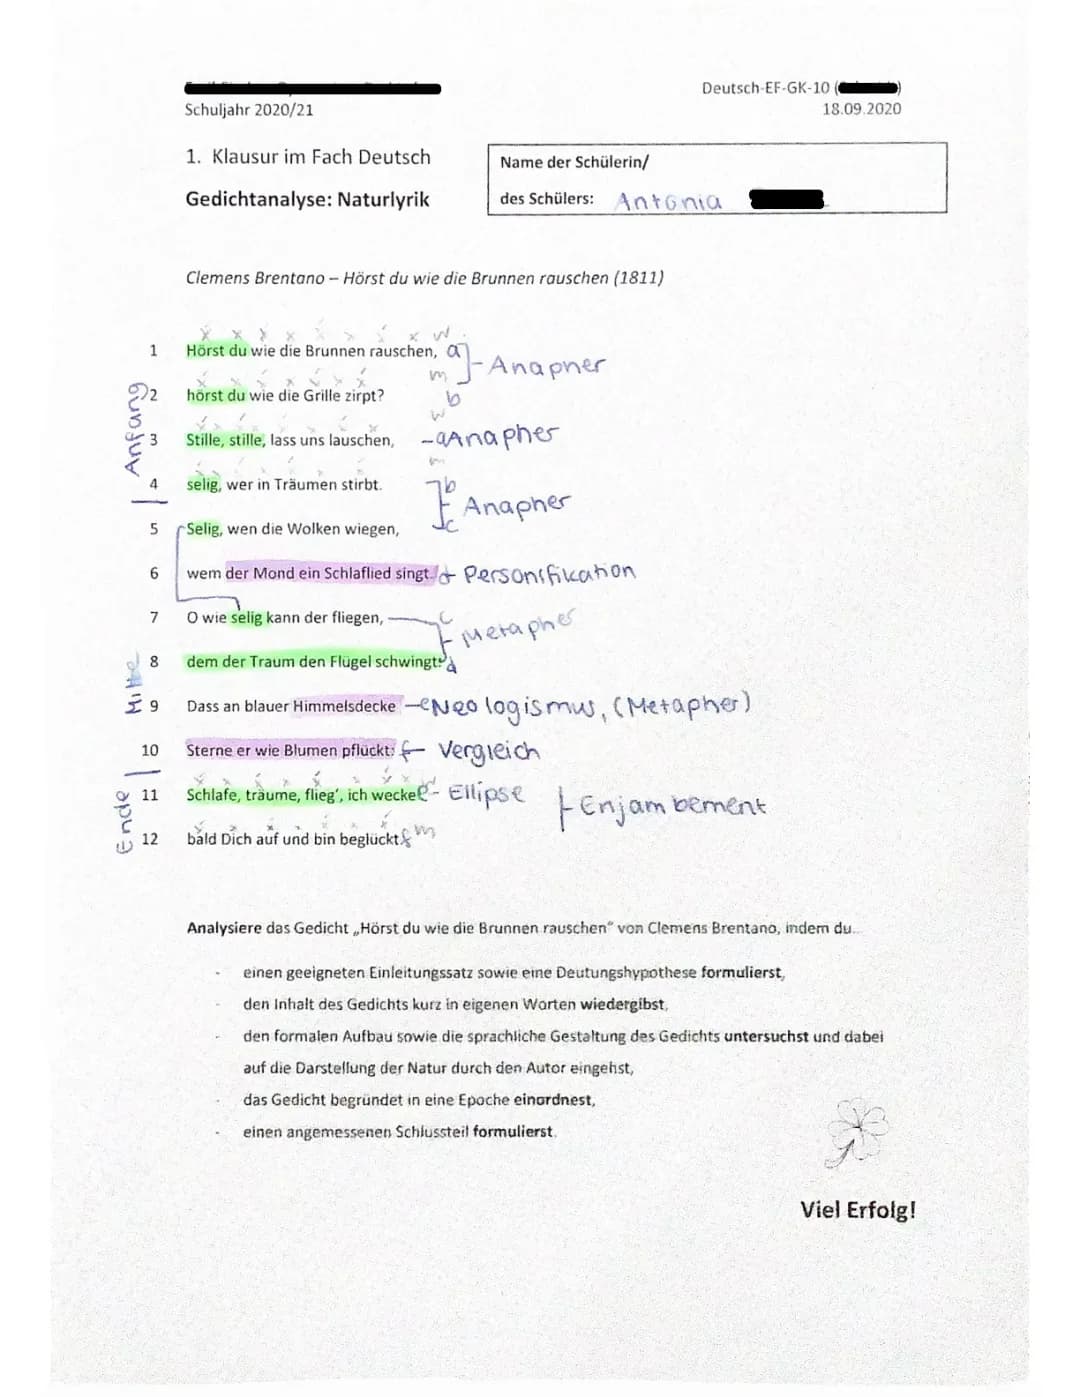 Schuljahr 2020/21
Deutsch-EF-GK-10 ( )
18.09.2020
1. Klausur im Fach Deutsch
Gedichtanalyse: Naturlyrik
Name der Schülerin/
des Schülers: Antonia
Clemens Brentano – Hörst du wie die Brunnen rauschen (1811)
x x x x x x x w
1 Hörst du wie die Brunnen rauschen, a ]- Anapher
m
2 hörst du wie die Grille zirpt? b
w
3 Stille, stille, lass uns lauschen, -a Anapher
m
4 selig, wer in Träumen stirbt. b
Anfang
Anapher
5 Selig, wen die Wolken wiegen, c
6 wem der Mond ein Schlaflied singt. d Personifikation
7 O wie selig kann der fliegen, c
Metapher
8 dem der Traum den Flügel schwingt: d
Mitte
9 Dass an blauer Himmelsdecke -e Neologismus, (Metapher)
10 Sterne er wie Blumen pflückt: f- Vergleich
11 Schlafe, träume, flieg', ich wecke e- Ellipse
Enjambement
12 bald Dich auf und bin beglückt. f m
Ende
Analysiere das Gedicht „Hörst du wie die Brunnen rauschen“ von Clemens Brentano, indem du...
- einen geeigneten Einleitungssatz sowie eine Deutungshypothese formulierst,
- den Inhalt des Gedichts kurz in eigenen Worten wiedergibst,
- den formalen Aufbau sowie die sprachliche Gestaltung des Gedichts untersuchst und dabei
auf die Darstellung der Natur durch den Autor eingehst,
- das Gedicht begründet in eine Epoche einordnest,
- einen angemessenen Schlussteil formulierst.
Viel Erfolg!